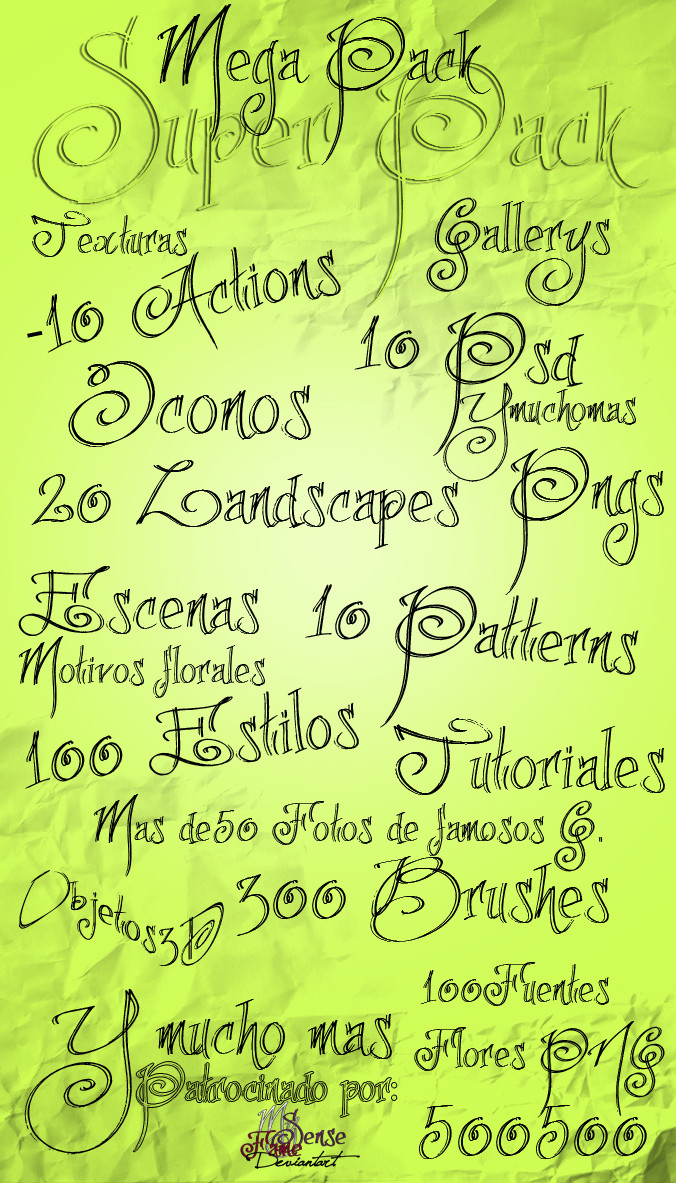 Mega Pack
Super Pack
Texturas
Gallerys
-10 Actions
10 Psd
Iconos
Ymuchomas
20 Landscapes
Pngs
Escenas
10 Patterns
Motivos florales
100 Estilos
Tutoriales
Mas de50 Fotos de famosos G.
Objetos3D
300 Brushes
100Fuentes
Y mucho mas
Flores PNG
Patrocinado por:
500500
Sense
Fame
Deviantart